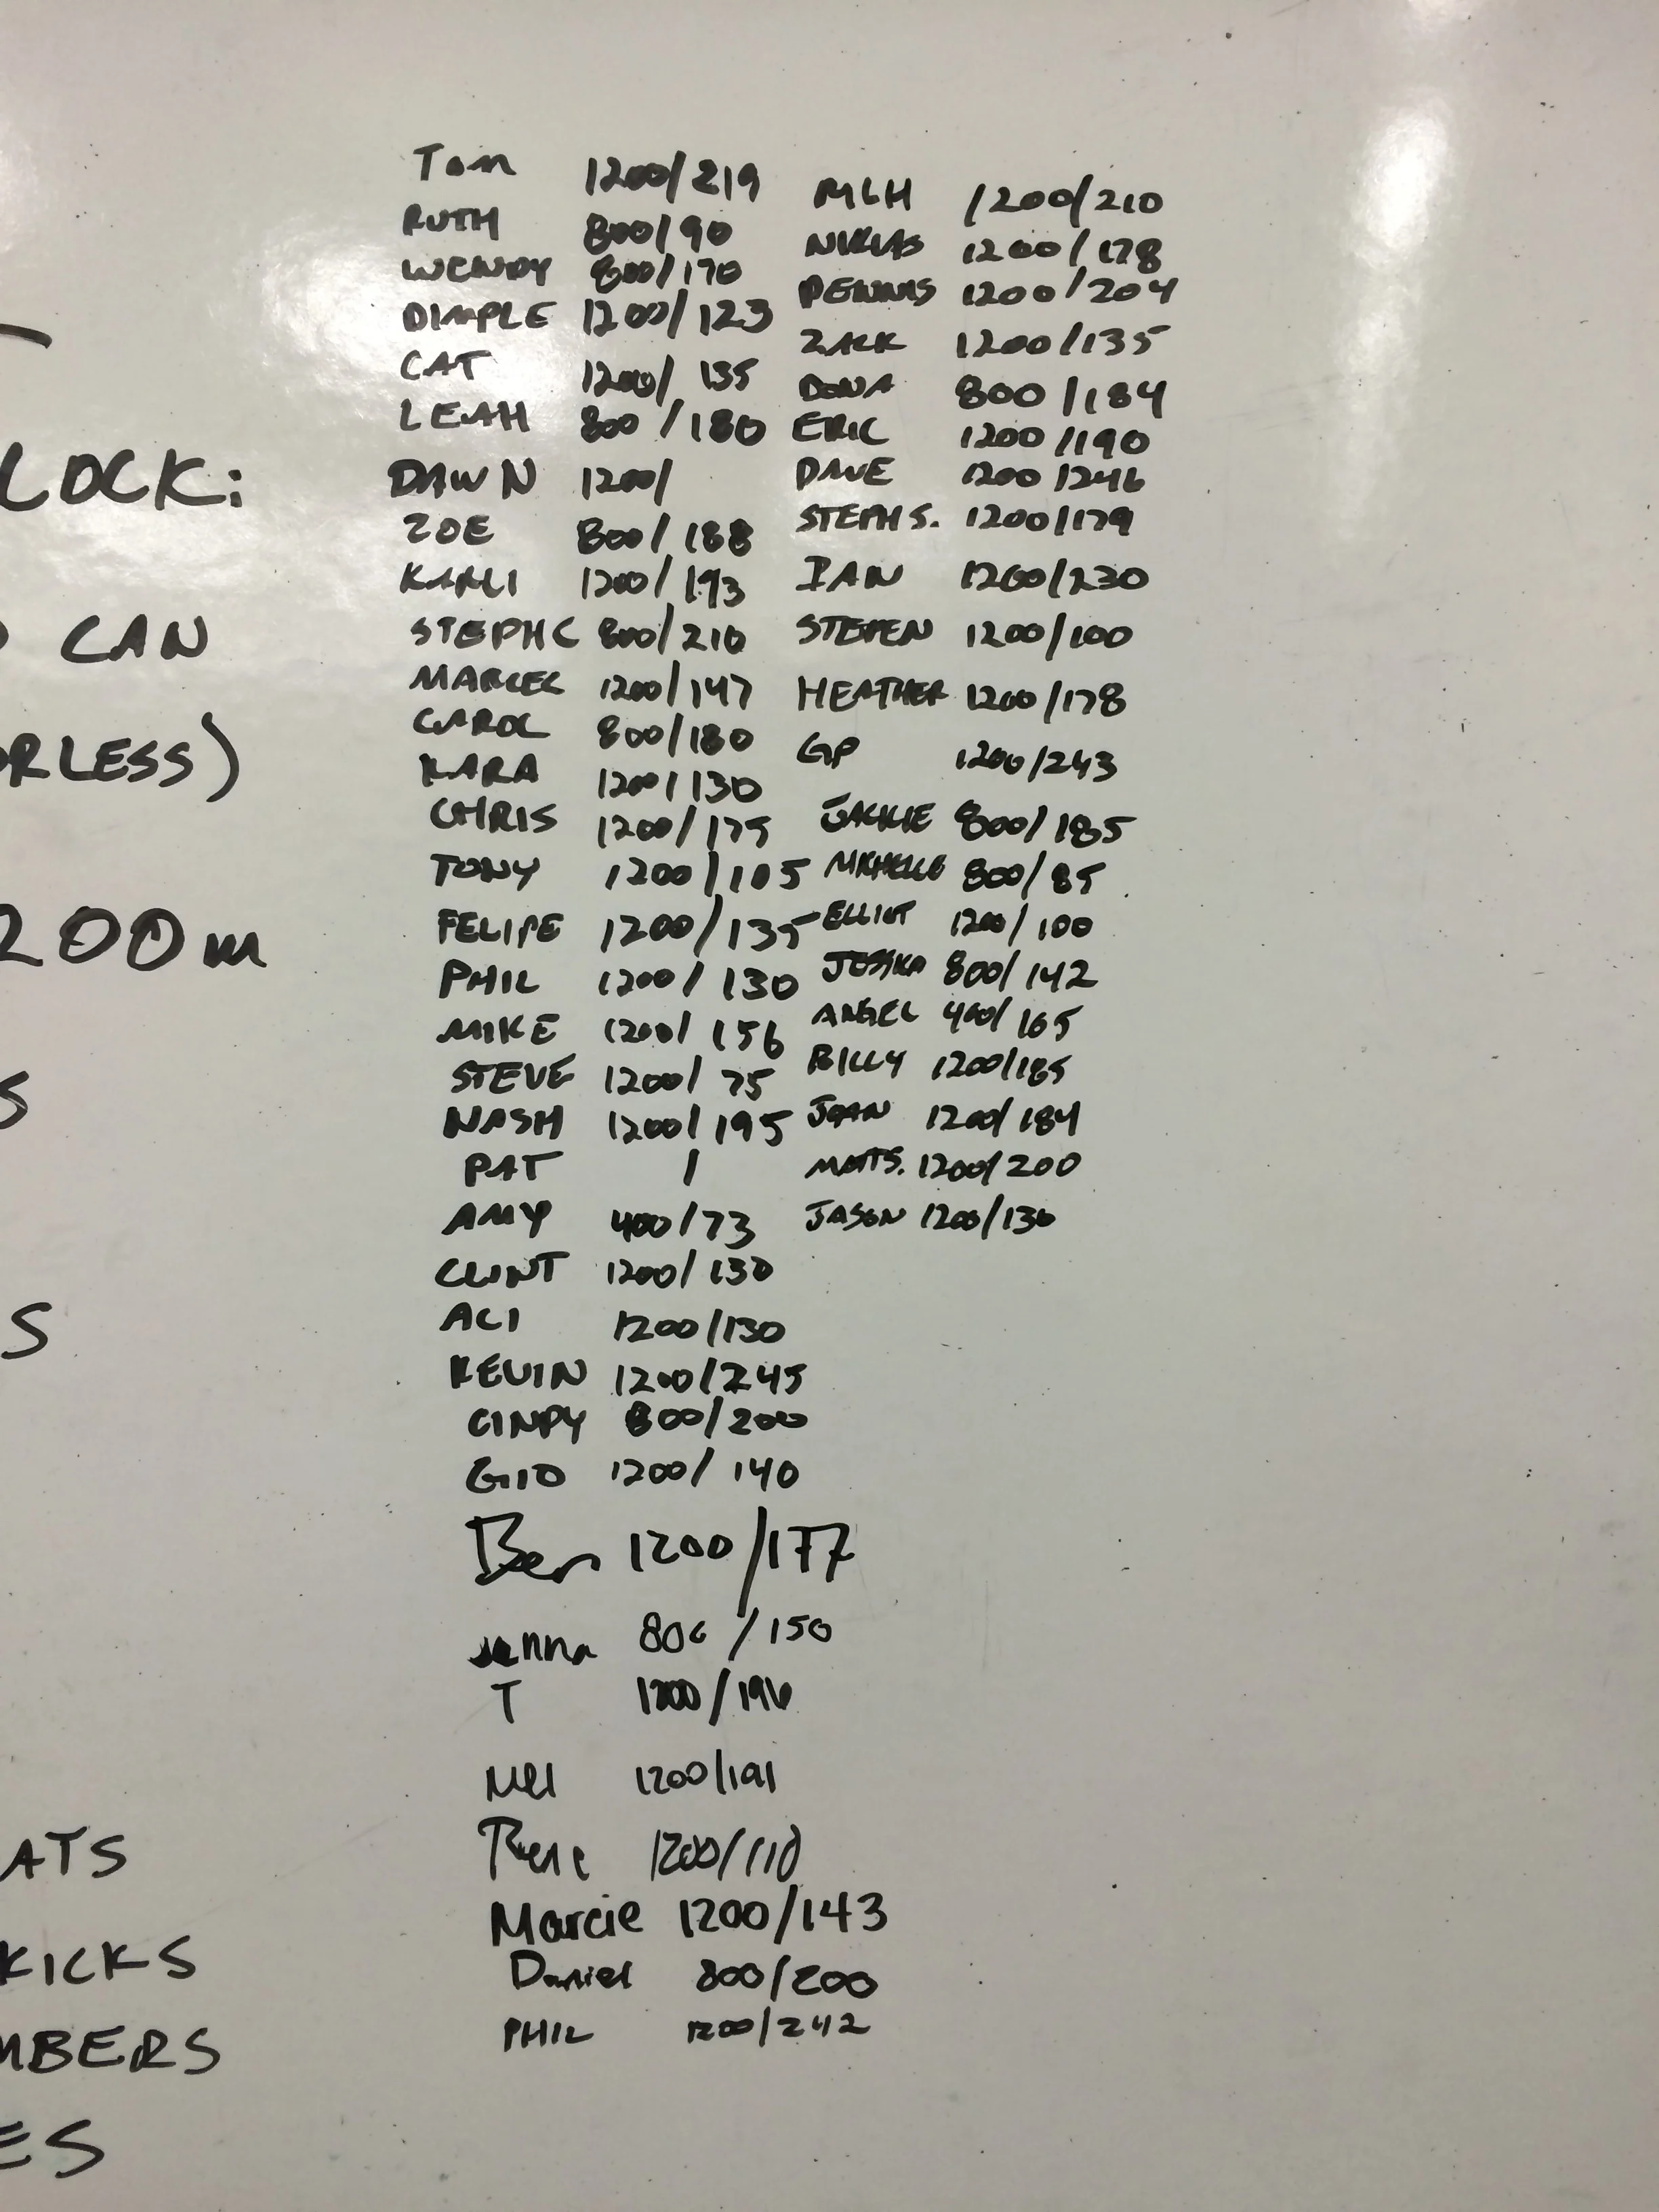 LOCK:
CAN
ORLESS)
200m
S
S
ATS
KICKS
MBERS
ES
Tom 1200/219
RUTH 800/90
WENDY 800/170
DIMPLE 1200/123
CAT 1200/135
LEAH 800/180
DAWN 1200/
ZOE 800/188
KARLI 1200/193
STEPH C 800/210
MARCEL 1200/147
CAROL 800/180
KARA 1200/130
CHRIS 1200/175
TONY 1200/105
FELIPE 1200/135
PHIL 1200/130
MIKE 1200/156
STEVE 1200/75
NASH 1200/195
PAT /
AMY 400/73
CLINT 1200/130
ALI 1200/130
KEVIN 1200/245
CINDY 800/200
GIO 1200/140
Ben 1200/177
Jenna 800/150
T 1200/196
Mel 1200/191
1200/110
Marcie 1200/143
Daniel 800/200
PHIL 1200/242
MLH 1200/210
NIKLAS 1200/178
DENNIS 1200/204
ZACK 1200/135
DANA 800/184
ERIC 1200/190
DAVE 1200/246
STEPH S. 1200/179
IAN 1200/230
STEVEN 1200/100
HEATHER 1200/178
GP 1200/243
JACKIE 800/185
MICHELLE 800/85
ELLIOT 1200/100
JESSIKA 800/142
ANGEL 400/165
BILLY 1200/185
JOAN 1200/184
MATT S. 1200/200
JASON 1200/130